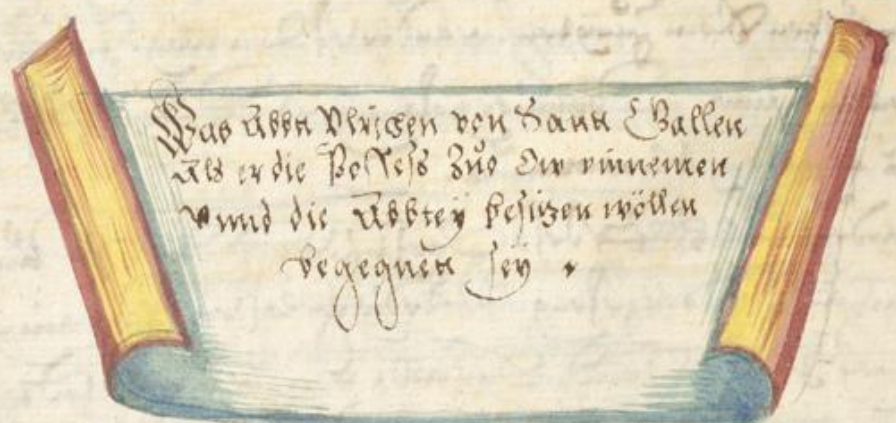 Was Abbt Vlrichen von Sant Gallen
Als er die Possess Zuͦ Ow einnemen
vnnd die Abbtey besitzen wöllen
begegnet sey .